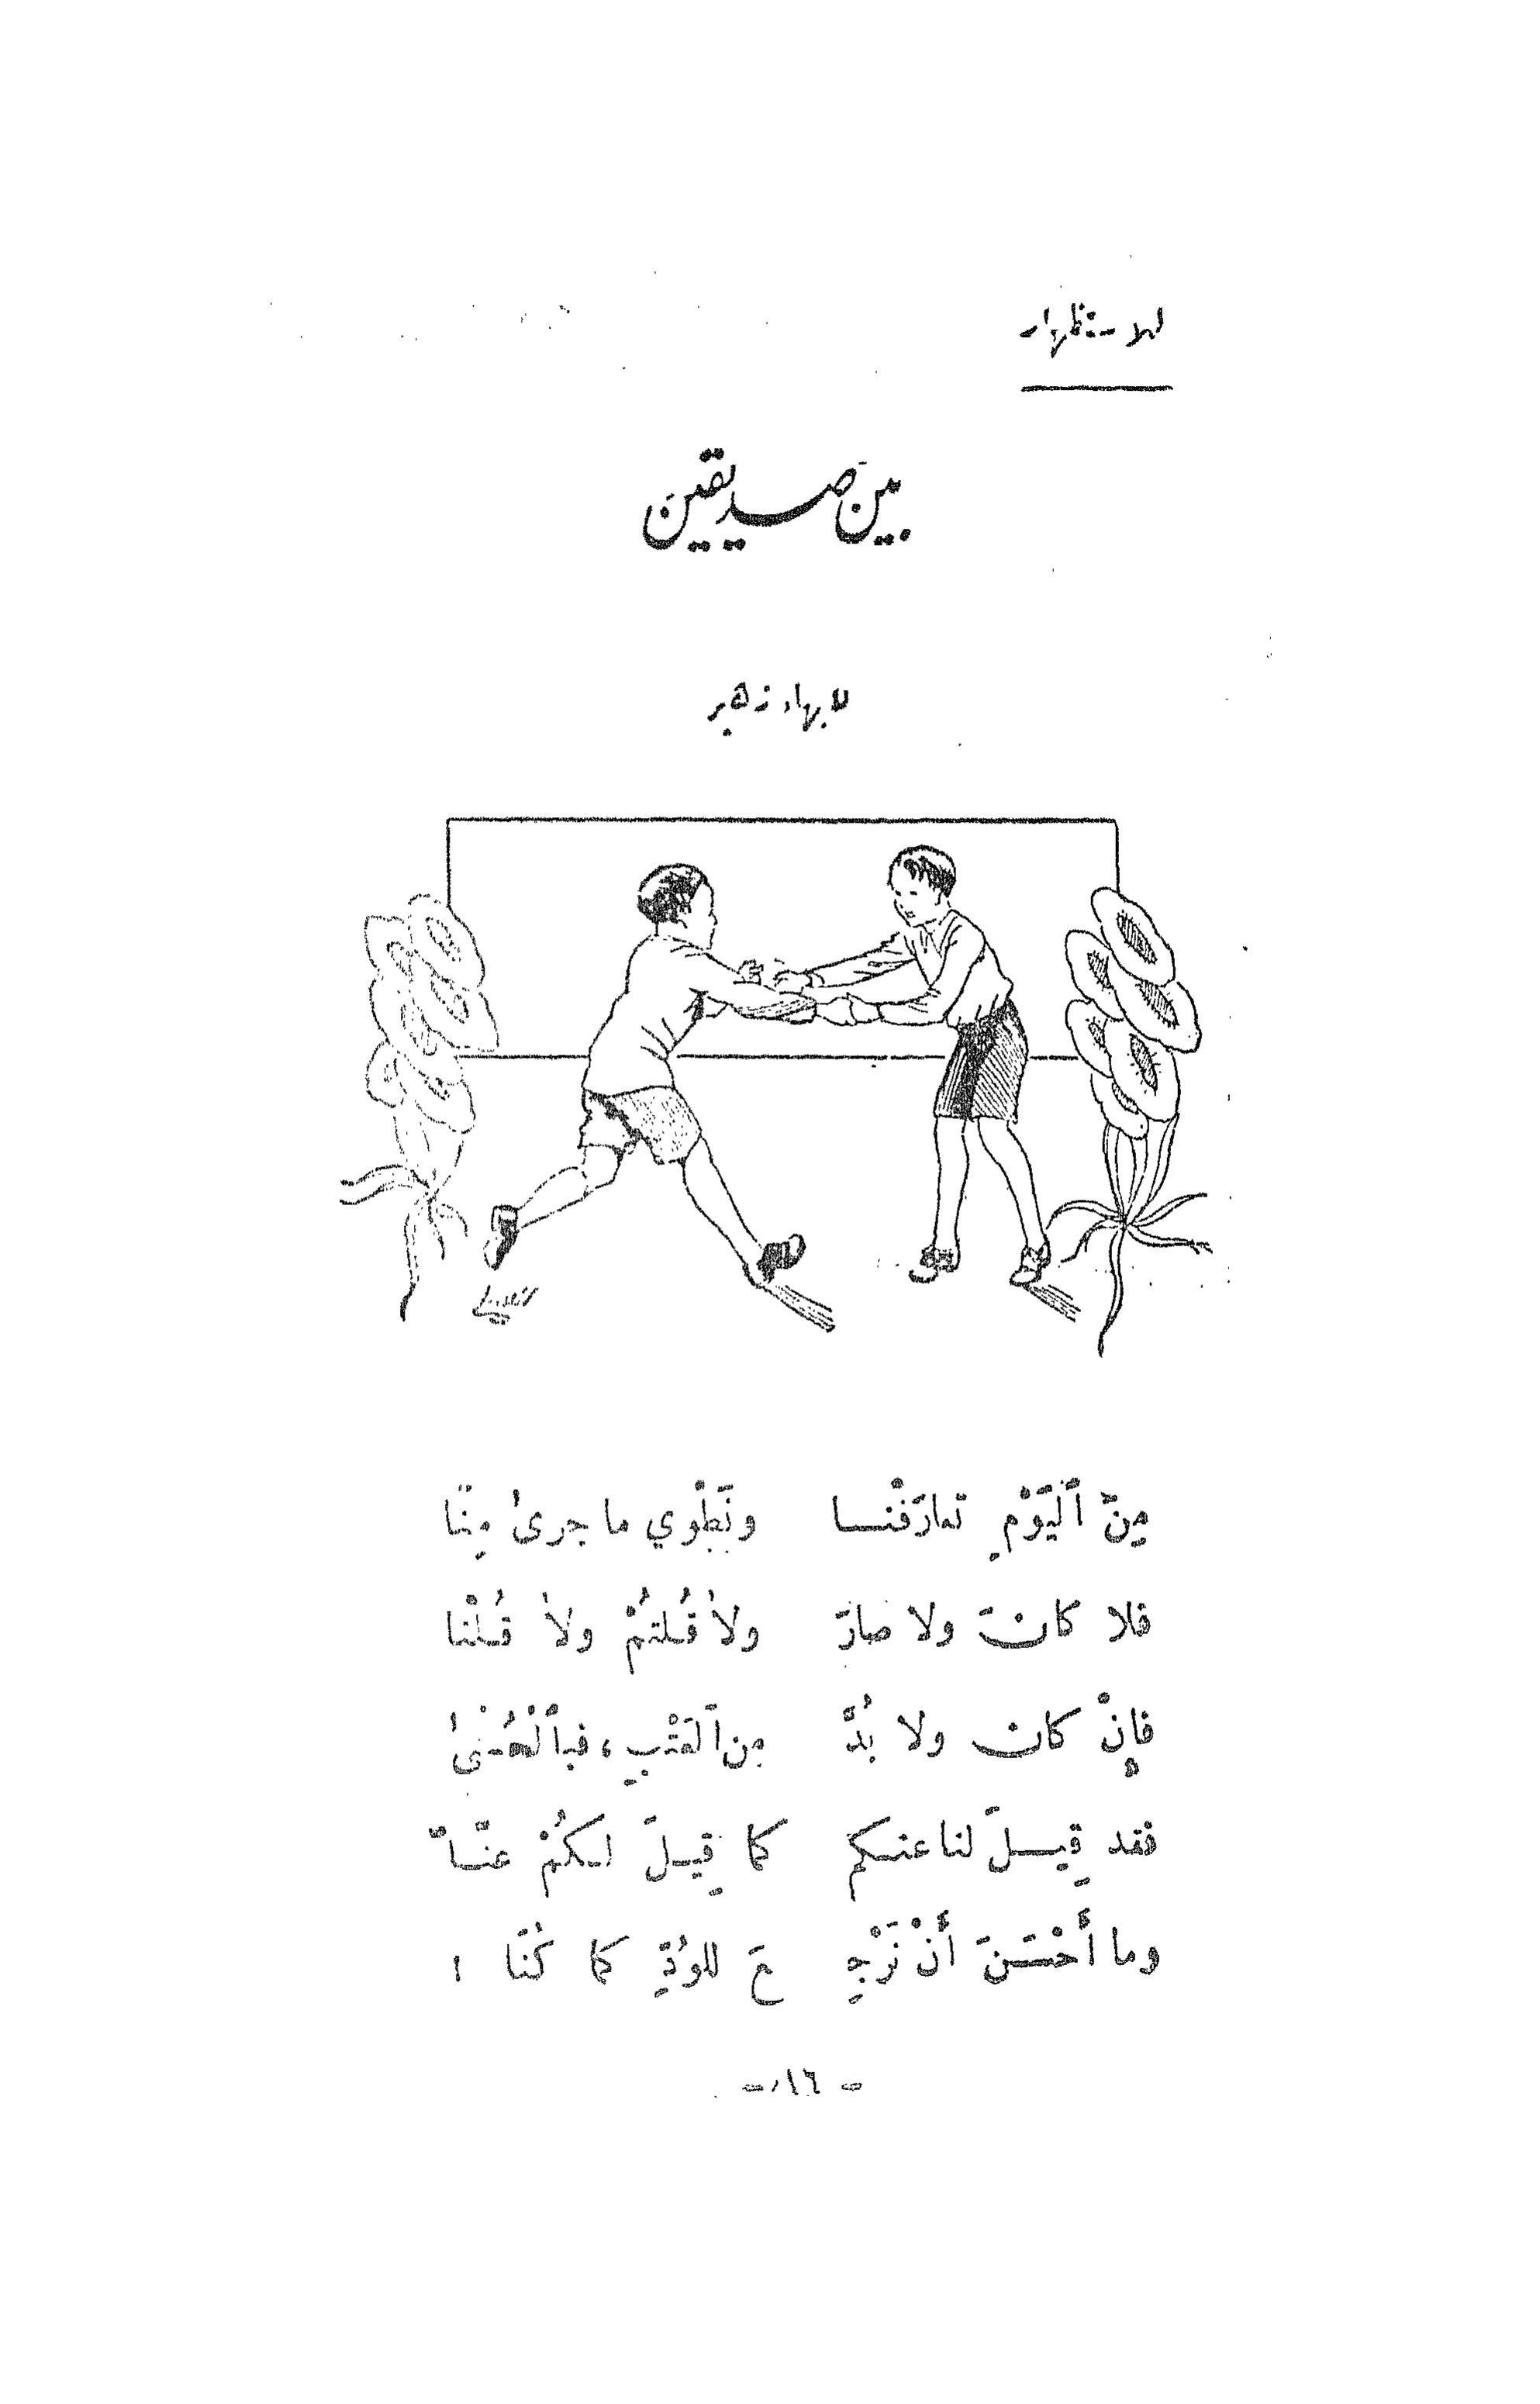 للاستظهار
بين صديقين
للبهاء زهير
مِنَ ٱلْيَوْمِ تعارَفْنا ونَطْوي ما جرىٰ مِنّا
فلا كانَ ولا صارَ ولا قُلتُمْ ولا قُلْنا
فإنْ كان ولا بُدَّ مِن ٱلعَتْبِ، فبٱلْحُسْنىٰ
فقد قِيلَ لنا عنكم كما قِيلَ لكُمْ عنّا
وما أَحْسَنَ أَنْ نَرْجِـ ـعَ للوُدِّ كما كُنّا !
- ١٦ -